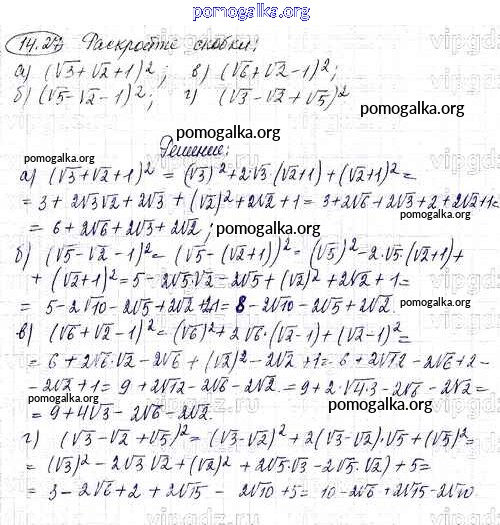 pomogalka.org
14.27 Раскройте скобки:
а) (√3+√2+1)²; в) (√6+√2-1)²;
б) (√5-√2-1)²; г) (√3-√2+√5)²
pomogalka.org
pomogalka.org
Решение:
pomogalka.org
а) (√3+√2+1)² = (√3)²+2·√3·(√2+1)+(√2+1)²=
= 3+2√3√2+2√3+(√2)²+2√2+1 = 3+2√6+2√3+2+2√2+1=
= 6+2√6+2√3+2√2;
pomogalka.org
б) (√5-√2-1)²= (√5-(√2+1))² = (√5)²-2·√5·(√2+1)+
+ (√2+1)²=5-2√5·√2-2√5+(√2)²+2√2+1=
pomogalka.org
= 5-2√10-2√5+2√2+2+1= 8-2√10-2√5+2√2.
pomogalka.org
в) (√6+√2-1)²=(√6)²+2√6·(√2-1)+(√2-1)²=
= 6+2√6·√2-2√6+(√2)²-2√2+1=6+2√12-2√6+2-
-2√2+1=9+2√12-2√6-2√2=9+2·√4·3-2√6-2√2=
= 9+4√3-2√6-2√2.
pomogalka.org
г) (√3-√2+√5)²=(√3-√2)²+2(√3-√2)·√5+(√5)²=
= (√3)²-2√3√2+(√2)²+2√5·√3-2√5·√2)+5=
= 3-2√6+2+2√15-2√10+5=10-2√6+2√15-2√10.
pomogalka.org